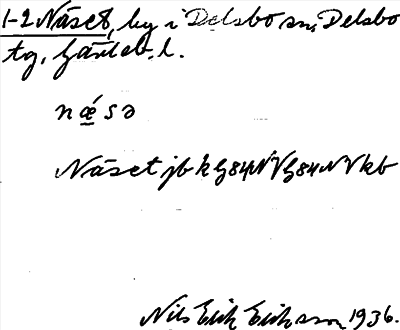 1-2 Näset, by i Delsbo sn, Delsbo
tg, Gävleb. l.
nǽsə
Näset jb kG84NVG84NVkb
Nils Erik Eriksson 1936.